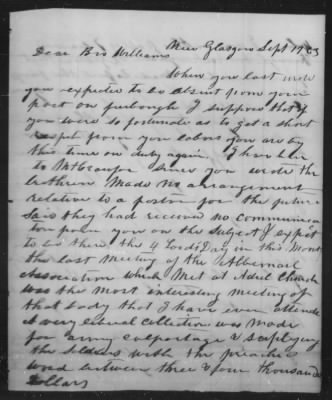 New Glasgow Sept 19 63
Dear Bro Williams
When you last wrote
you expected to be absent from your
post on furlough I suppose that if
you were so fortunate as to get a short
respit from your labors you are by
this time on duty again. I have been
to Mt since you wrote the
brethren Made No arrangement
relative to a pastor for the future
Said they had received no communica
tion from you on the Subject I expect
to be there the 4 Lords Day in this Mont
the last Meeting of the Albemarl
Association which Met at Adiel Church
was the most interesting meeting of
that body that I have ever attende
A very liberal collection was made
for army colportage & Supplying
the Soldiers with the preache
word between three & four thousand
Dollars